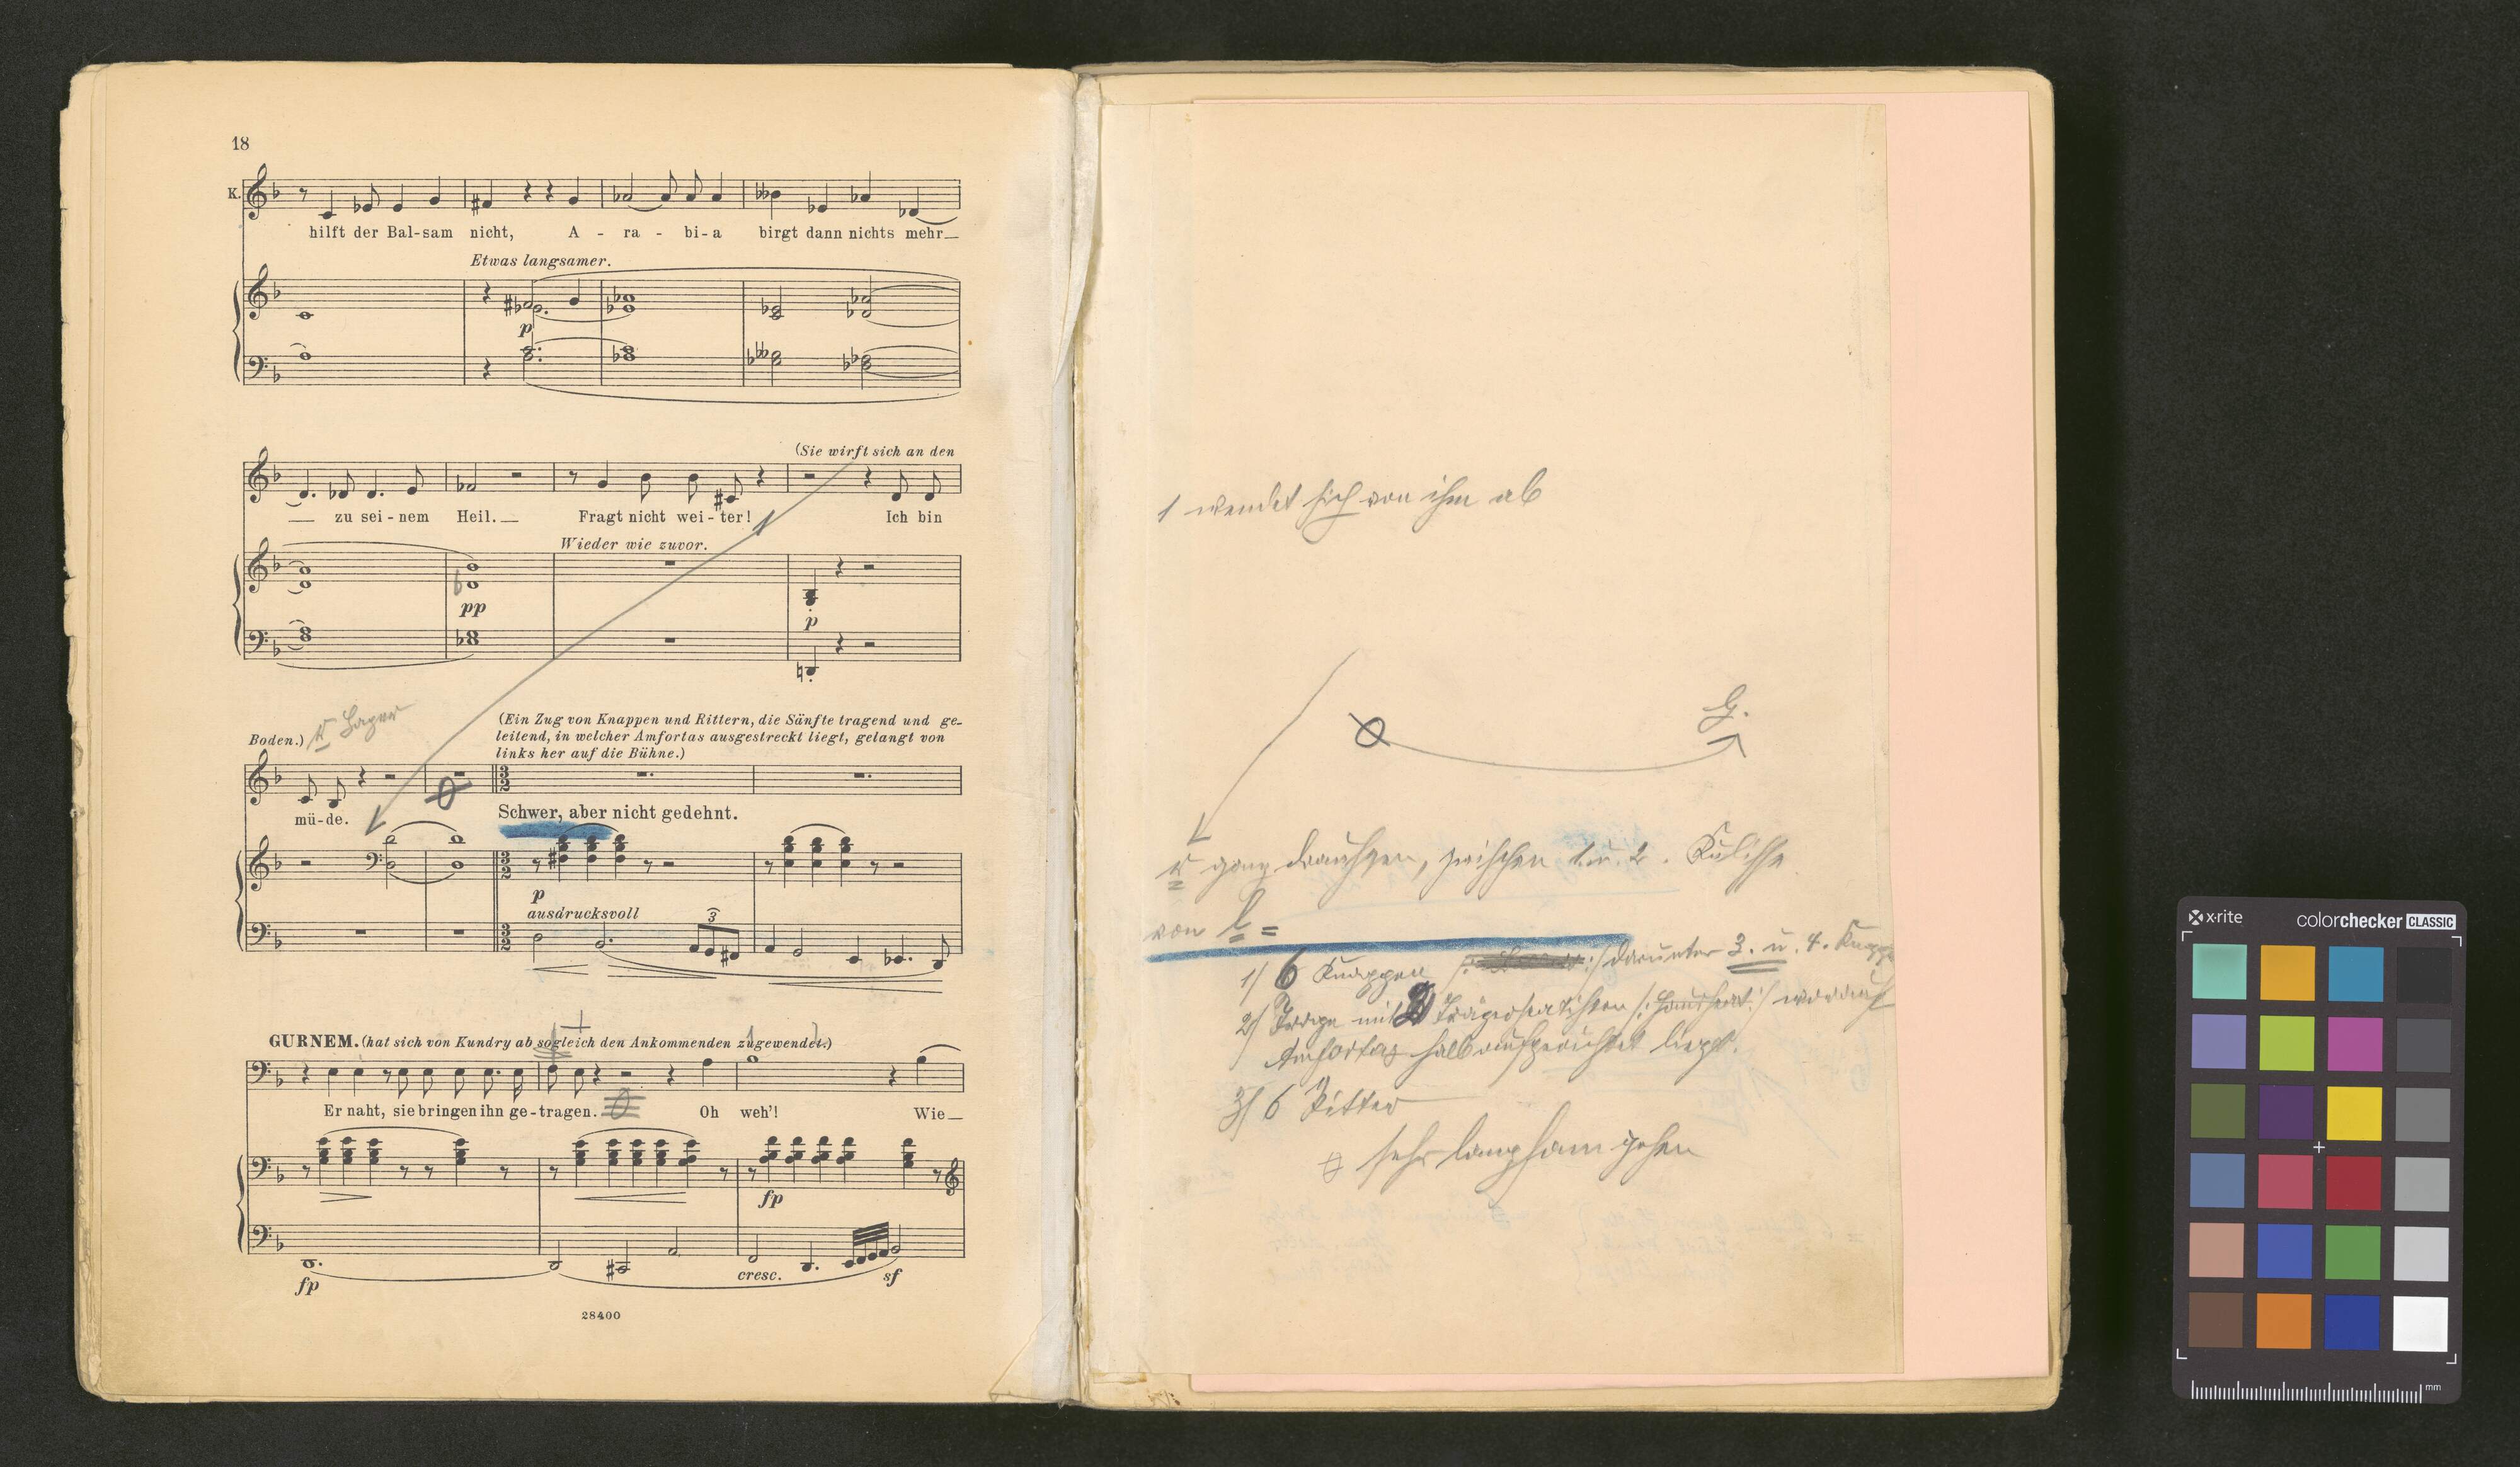 18
K.
hilft der Bal-sam nicht, A - ra - bi-a birgt dann nichts mehr
Etwas langsamer.
p
(Sie wirft sich an den
zu sei-nem Heil. Fragt nicht wei-ter! 1 Ich bin
Wieder wie zuvor.
pp
p
Boden.) K Lager
(Ein Zug von Knappen und Rittern, die Sänfte tragend und ge-
leitend, in welcher Amfortas ausgestreckt liegt, gelangt von
links her auf die Bühne.)
mü-de.
Schwer, aber nicht gedehnt.
p
ausdrucksvoll
3
GURNEM. (hat sich von Kundry ab sogleich den Ankommenden zugewendet.)
Er naht, sie bringen ihn ge-tragen. Oh weh'! Wie
fp
fp
cresc.
sf
28400
1 wendet sich von ihm ab
G.
K ganz draußen, zwischen 1. u. 2. Kulisse
von l =
1) 6 Knappen darunter 3. u. 4. Knappe
2) Trage mit Trägerstatisten worauf
Amfortas halb aufgerichtet liegt.
3) 6 Ritter
sehr langsam gehen
x-rite
colorchecker CLASSIC
mm